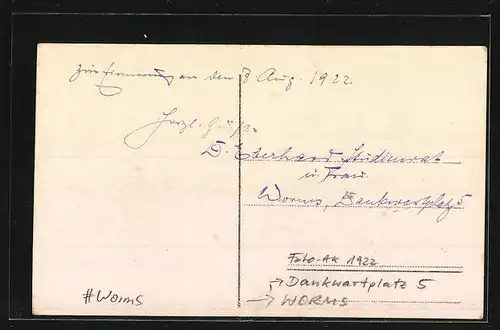 Zur Erinnerung an den 8 Aug. 1922.
Herzl. Grüße
D. Eberhard Studienrat
u. Frau
Worms, Dankwartplatz 5
Foto-AK 1922
→ Dankwartplatz 5
→ WORMS
#Worms